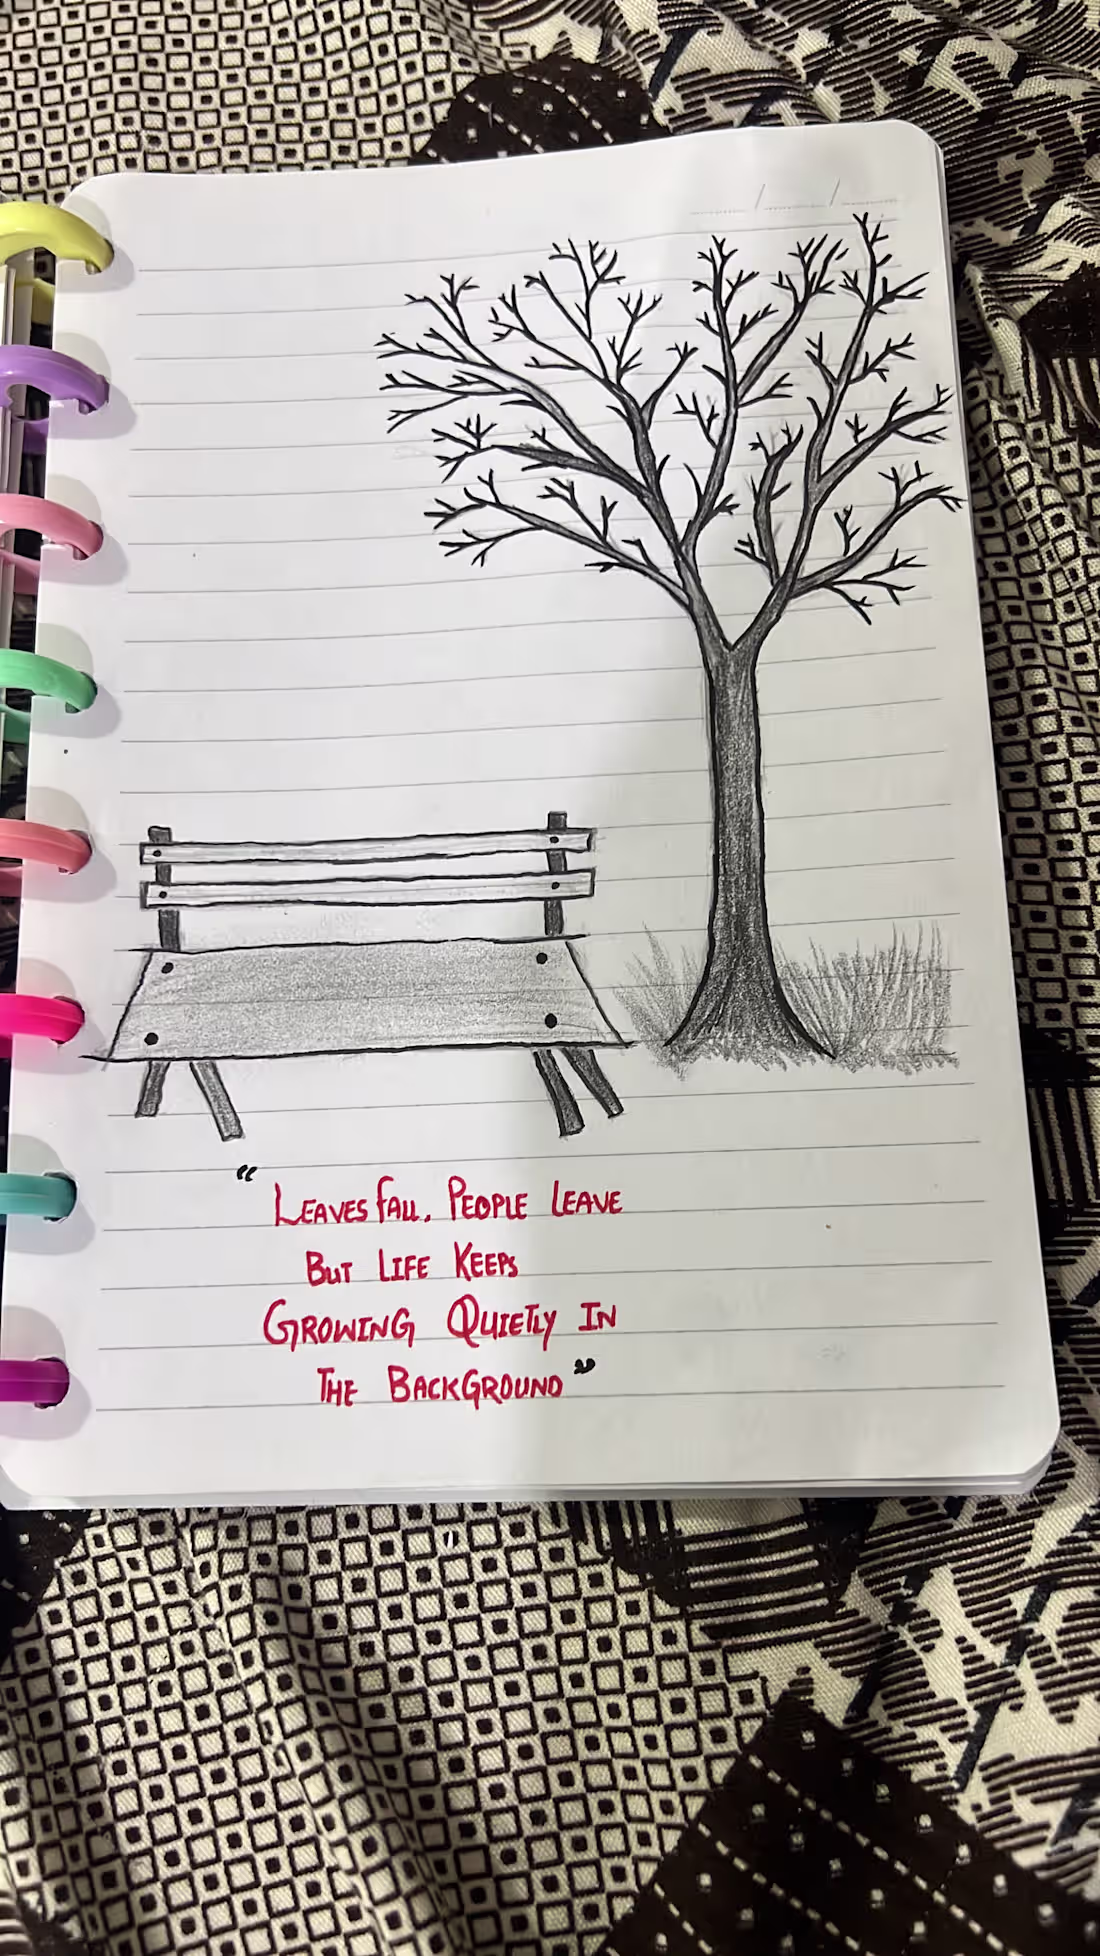 “ LEAVES FALL, PEOPLE LEAVE
BUT LIFE KEEPS
GROWING QUIETLY IN
THE BACKGROUND ”